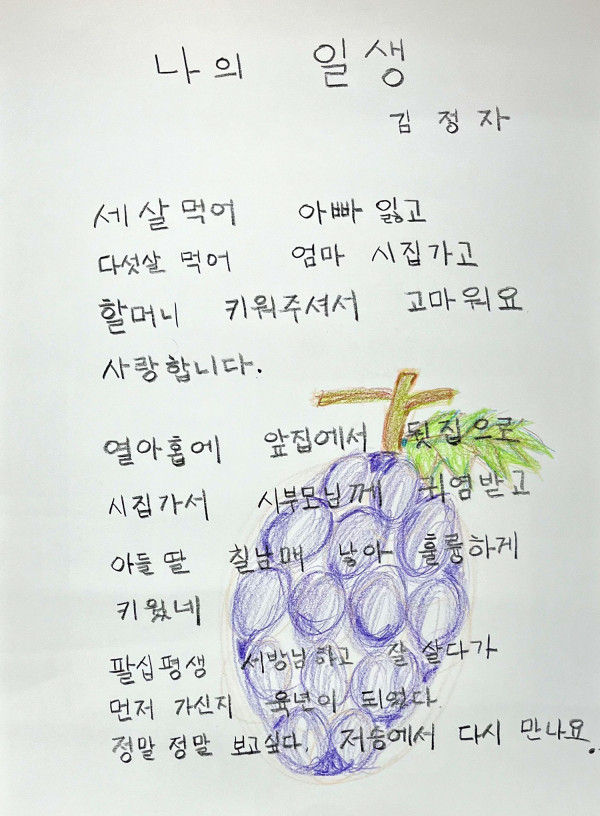 나의 일생
김정자
세살먹어 아빠 잃고
다섯살 먹어 엄마 시집가고
할머니 키워주셔서 고마워요
사랑합니다.
열아홉에 앞집에서 뒷집으로
시집가서 시부모님께 귀염받고
아들 딸 칠남매 낳아 훌륭하게
키웠네
팔십평생 서방님하고 잘 살다가
먼저 가신지 육년이 되었다.
정말 정말 보고싶다. 저승에서 다시 만나요.